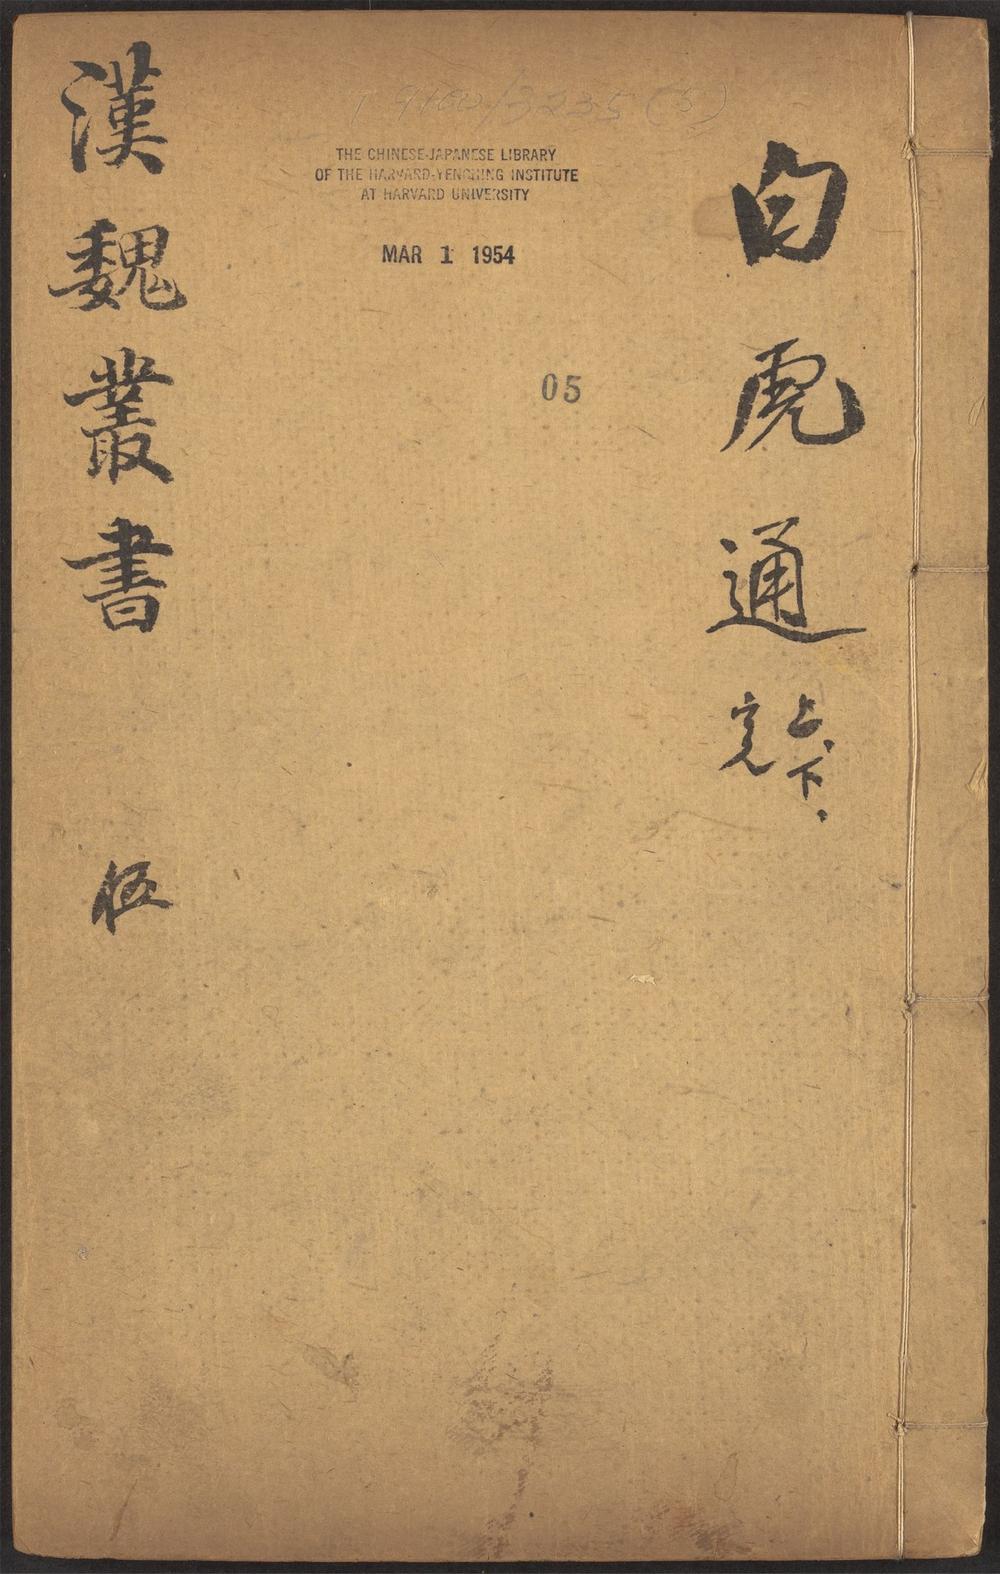 白虎通
上、下、
完
T 9100/3235 (5)
THE CHINESE-JAPANESE LIBRARY
OF THE HARVARD-YENCHING INSTITUTE
AT HARVARD UNIVERSITY
MAR 1 1954
05
漢魏叢書 伍